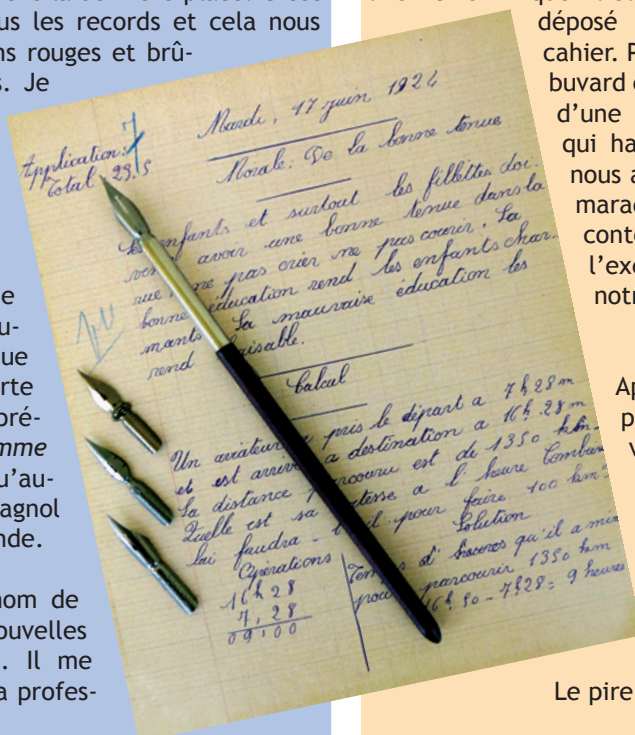 us les records et cela nous
ns rouges et brû-
s. Je
e
u-
ue
rte
pré-
mme
u'au-
agnol
nde.
nom de
ouvelles
. Il me
a profes-
Mardi, 17 juin 1924
Application: 7
Total 29.5
Morale: De la bonne tenue
Les enfants et surtout les fillettes doi-
vent avoir une bonne tenue dans la
rue ne pas crier ne pas courir. La
bonne éducation rend les enfants char-
mants. La mauvaise éducation les
rend
10
Calcul
Un aviateur a pris le départ a 7h28m
et est arrivé a destination a 16h.28m
La distance parcouru est de 1350 km.
Quelle est sa vitesse a l'heure Combien
lui faudra-t-il pour faire 100 km?
Solution
Opérations
16h28
7,28
09:00
Temps d'heures qu'il a mis
pour parcourir 1350 km
- 7h28 = 9 heures
déposé
cahier. P
buvard
d'une
qui ha
nous a
marad
conte
l'exe
notr
Ap
p
v
Le pire